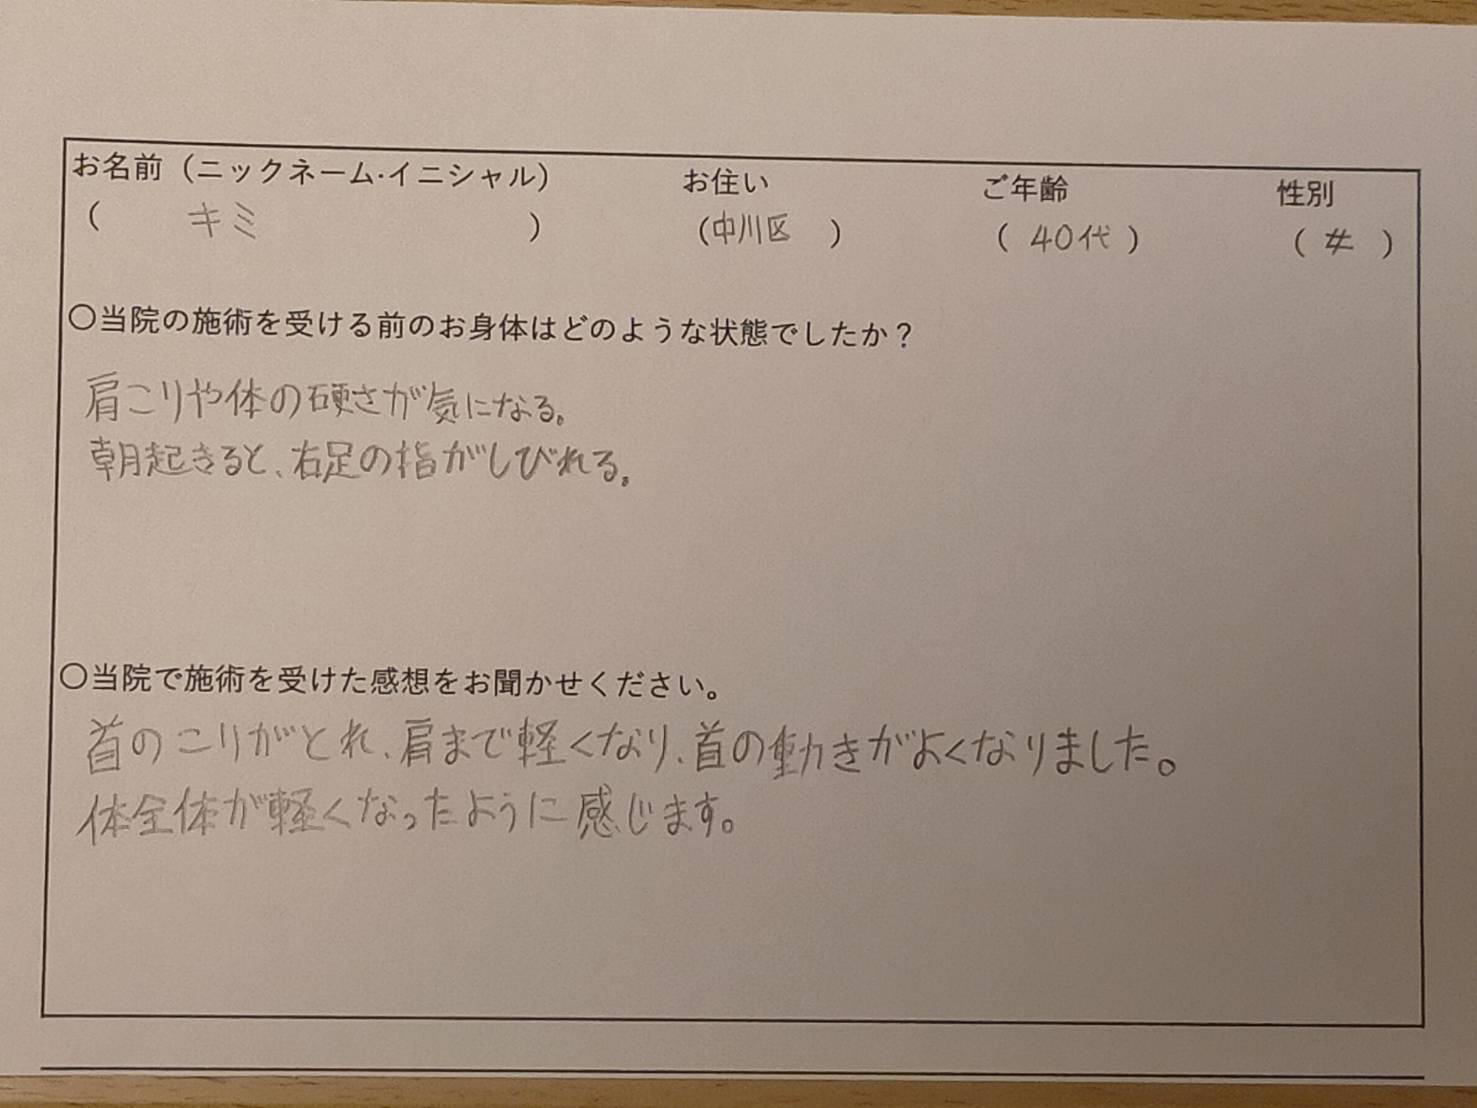 お名前（ニックネーム・イニシャル） お住い ご年齢 性別
（ キミ ） （中川区 ） （ 40代 ） （ 女 ）
○当院の施術を受ける前のお身体はどのような状態でしたか？
肩こりや体の硬さが気になる。
朝起きると、右足の指がしびれる。
○当院で施術を受けた感想をお聞かせください。
首のこりがとれ、肩まで軽くなり、首の動きがよくなりました。
体全体が軽くなったように感じます。